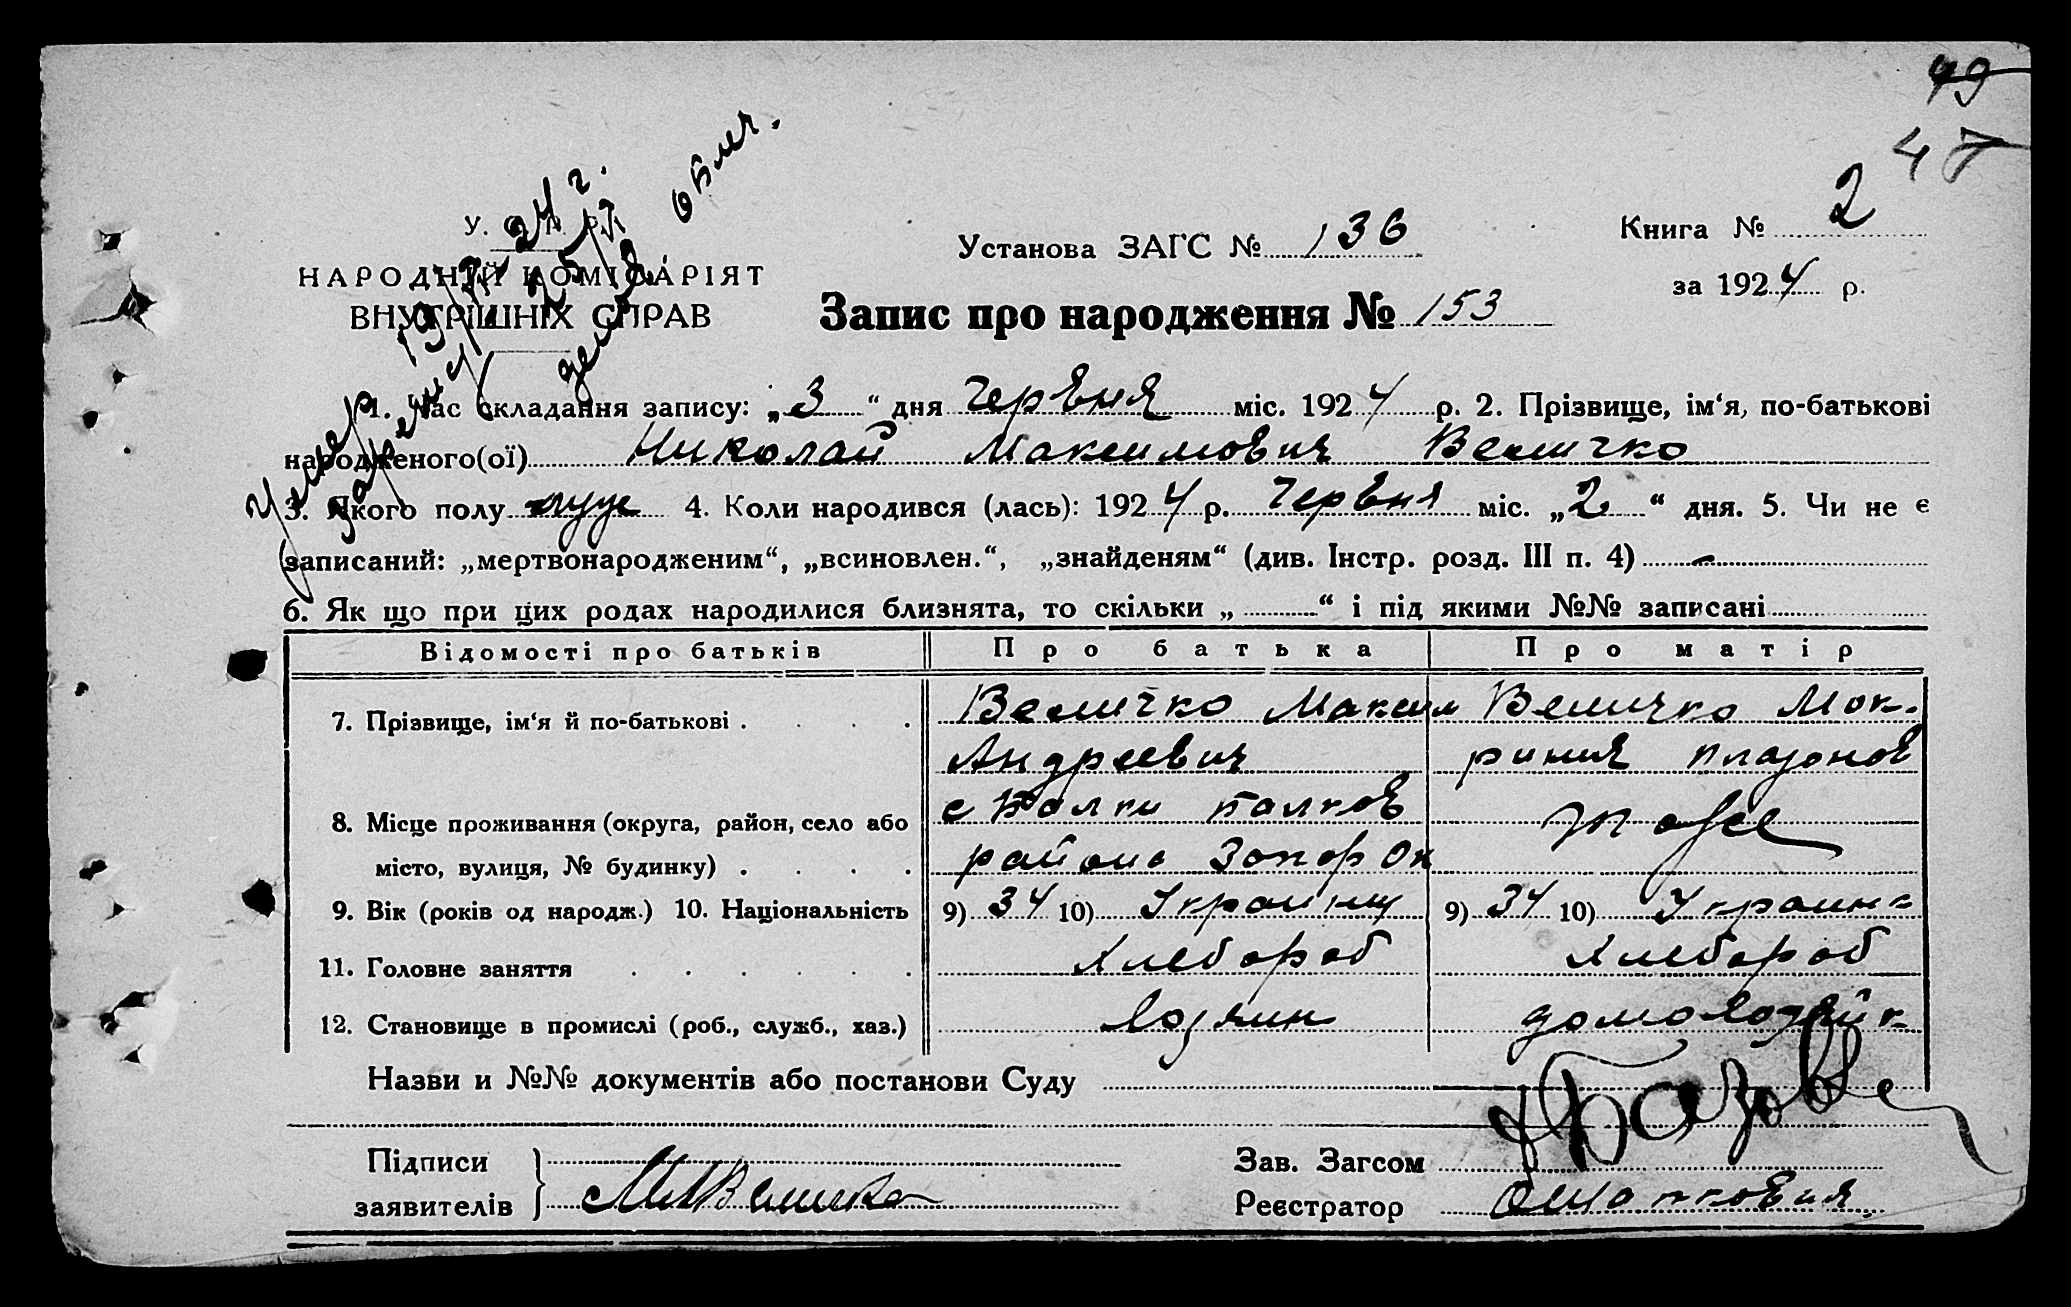 49
47
У. С. Р. Р.
НАРОДНІЙ КОМІСАРІЯТ
ВНУТРІШНІХ СПРАВ
Умер 19/
Установа ЗАГС № 136
Книга № 2
за 1924 р.
Запис про народження № 153
1. Час складання запису: „3“ дня Червня міс. 1924 р. 2. Прізвище, ім‘я, по-батькові
народженого(ої) Николай Максимович Величко
3. Якого полу муж 4. Коли народився (лась): 1924 р. Червня міс. „2“ дня. 5. Чи не є
записаний: „мертвонародженим“, „всиновлен.“, „знайденям“ (див. Інстр. розд. III п. 4) –
6. Як що при цих родах народилися близнята, то скільки „ “ і під якими №№ записані
Відомості про батьків Про батька Про матір
7. Прізвище, ім‘я й по-батькові Величко Максим Величко Мок-
Андреевич рина Платонов
8. Місце проживання (округа, район, село або с Балки Балков тоже
місто, вулиця, № будинку) района Запор Ок
9. Вік (років од народж.) 10. Національність 9) 34 10) Украинц 9) 34 10) Украинк
11. Головне заняття Хлебороб Хлебороб
12. Становище в промислі (роб., служб., хаз.) Хозяин домохозяйк
Назви и №№ документів або постанови Суду
Підписи
заявителів М Величко
Зав. Загсом
Реєстратор